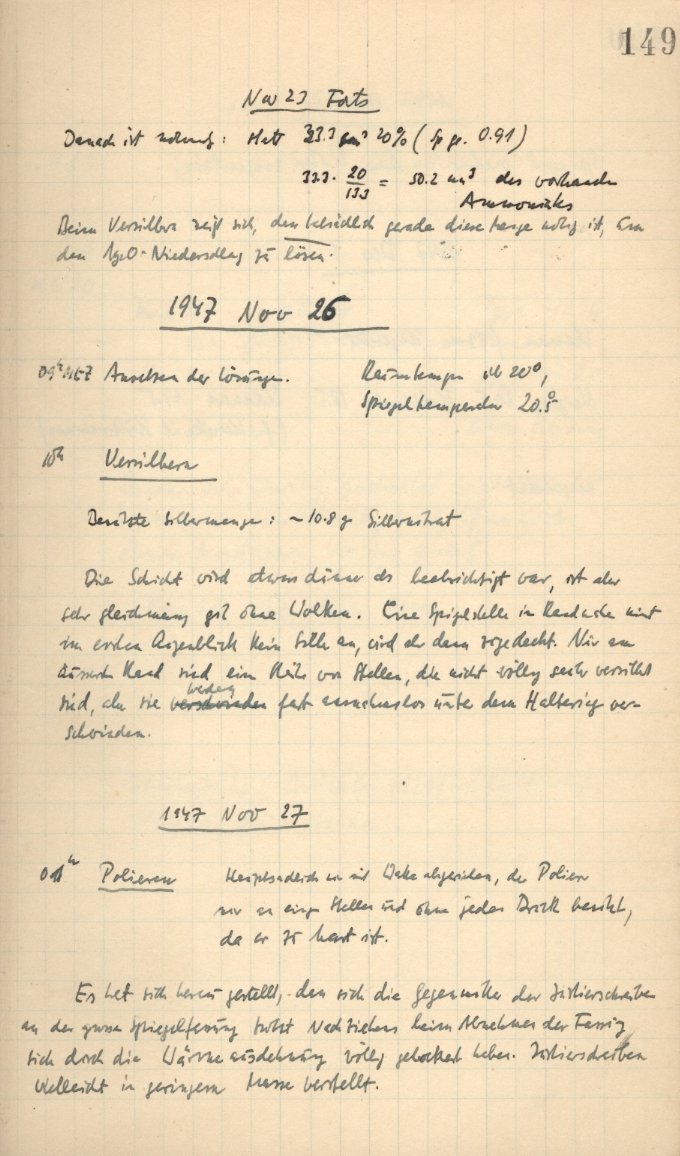 149
Nov 23 Forts
Danach ist notwend: statt 33.3 cm³ 20% (Sp. ge. 0.91)
33.3 · 20/13.3 = 50.2 cm³ des vorhanden
Ammoniaks
Beim Versilbern zeigt sich, dass tatsächlich gerade diese Menge nötig ist, um
den Ag₂O-Niederschlag zu lösen.
1947 Nov 26
09ʰ MEZ Ansetzen der Lösungen. Raumtemper 20°,
Spiegeltemperatur 20.5°
10ʰ Versilbern
Benützte Silbermenge: ~ 10.8 gr Silbernitrat
Die Schicht wird etwas dünner als beabsichtigt war, ist aber
sehr gleichmässig und ohne Wolken. Eine Spiegelstelle in Randnähe nimmt
im ersten Augenblick kein Silber an, wird aber dann zugedeckt. Nur am
äussersten Rand sind eine Reihe von Stellen, die nicht völlig sauber versilbert
sind, aber sie verschwinden werden fast ausnahmslos unter dem Haltering ver-
schwinden.
1947 Nov 27
01ʰ Polieren Hauptsächlich nur mit Watte abgerieben, der Polierer
nur an einigen Stellen und ohne jeden Druck benützt,
da er zu hart ist.
Es hat sich heraus gestellt, dass sich die Gegenmutter der Justierschrauben
an der grossen Spiegelfassung trotz Nachziehens beim Abnehmen der Fassung
sich durch die Wärmeausdehnung völlig gelockert haben. Justierschrauben
vielleicht in geringem Masse verstellt.